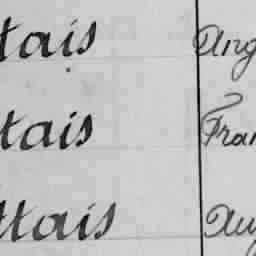 tais Ang
tais Fran
ttais Aug